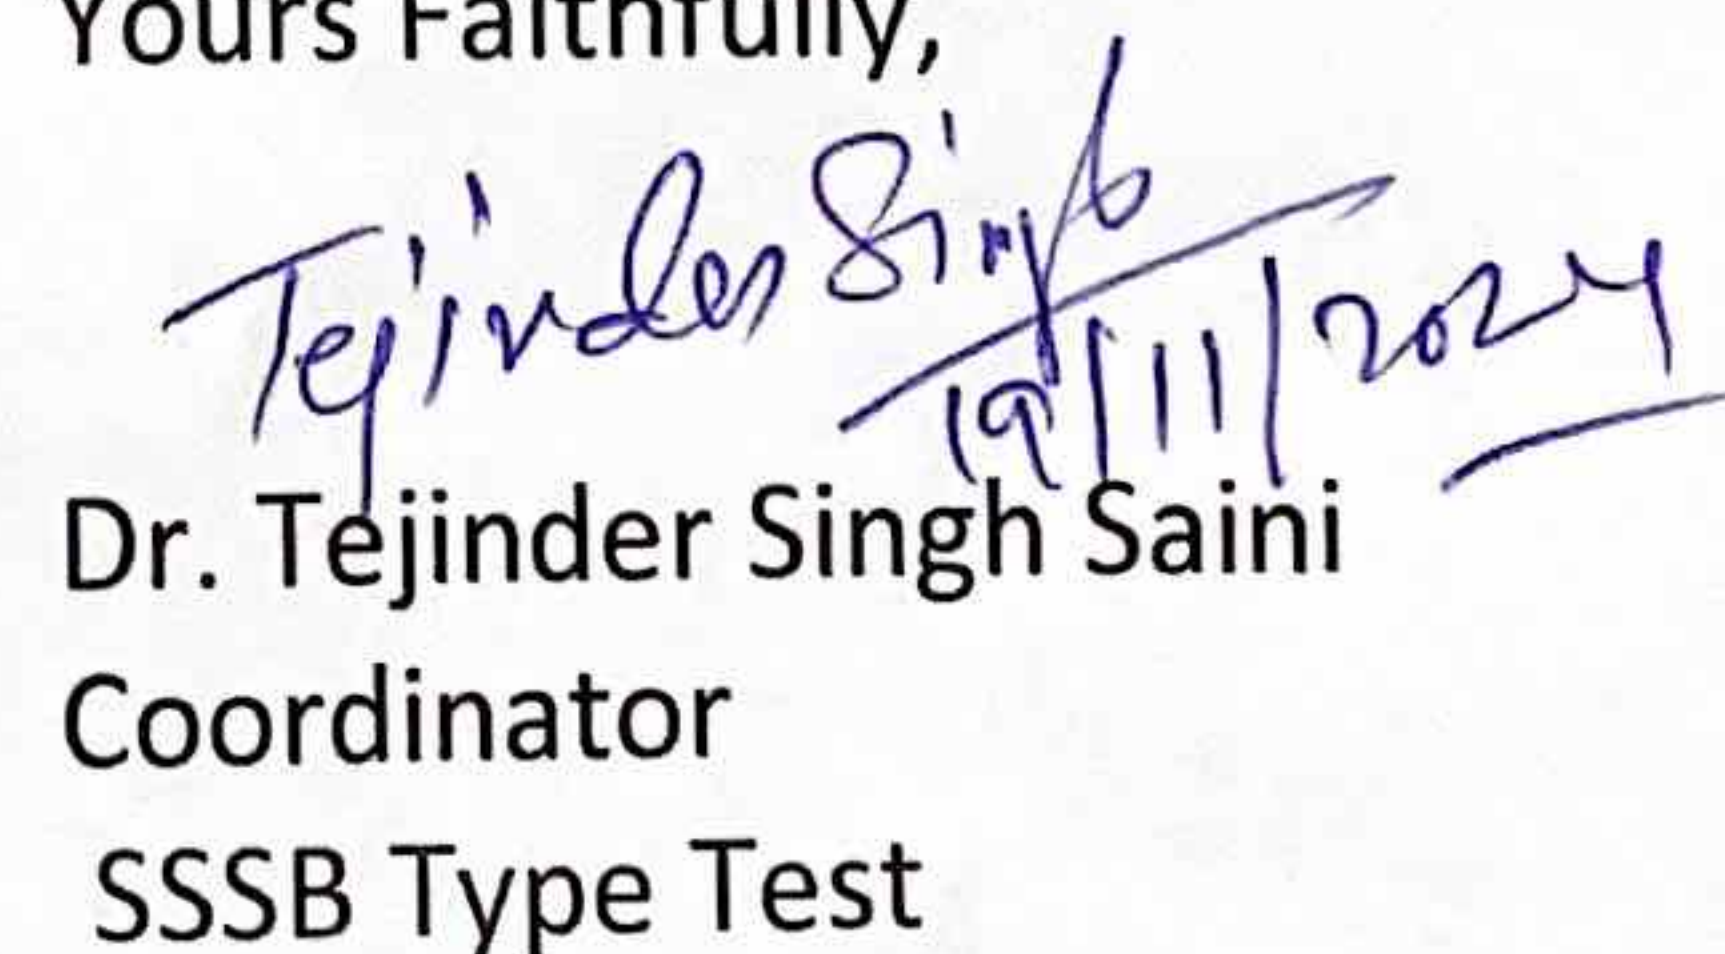 Yours Faithfully,
Tejinder Singh
19/11/2024
Dr. Tejinder Singh Saini
Coordinator
SSSB Type Test